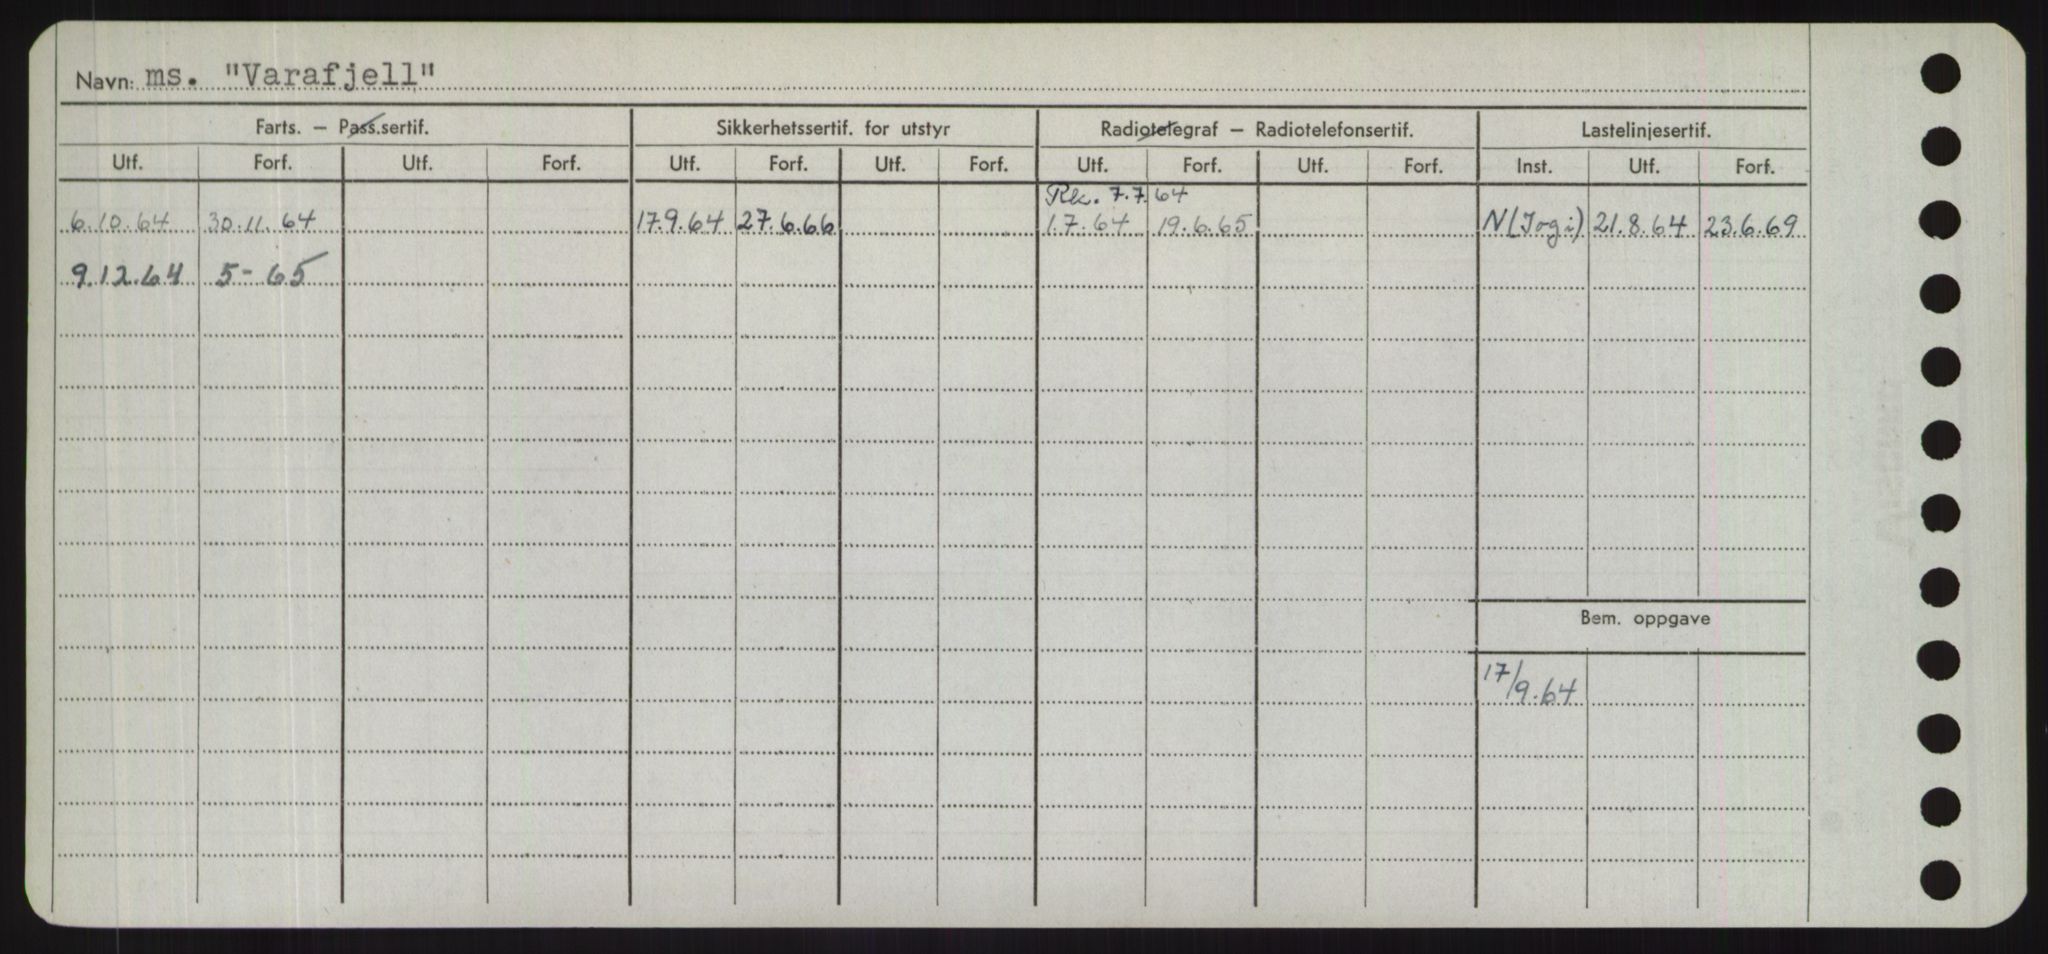 Navn: ms. "Varafjell"
Farts. – Pass.sertif. Sikkerhetssertif. for utstyr Radiotelegraf – Radiotelefonsertif. Lastelinjesertif.
Utf. Forf. Utf. Forf. Utf. Forf. Utf. Forf. Utf. Forf. Utf. Forf. Inst. Utf. Forf.
Rk. 7.7.64
6.10.64 30.11.64 17.9.64 27.6.66 1.7.64 19.6.65 N(Jogi) 21.8.64 23.6.69
9.12.64 5-65
Bem. oppgave
17/9.64